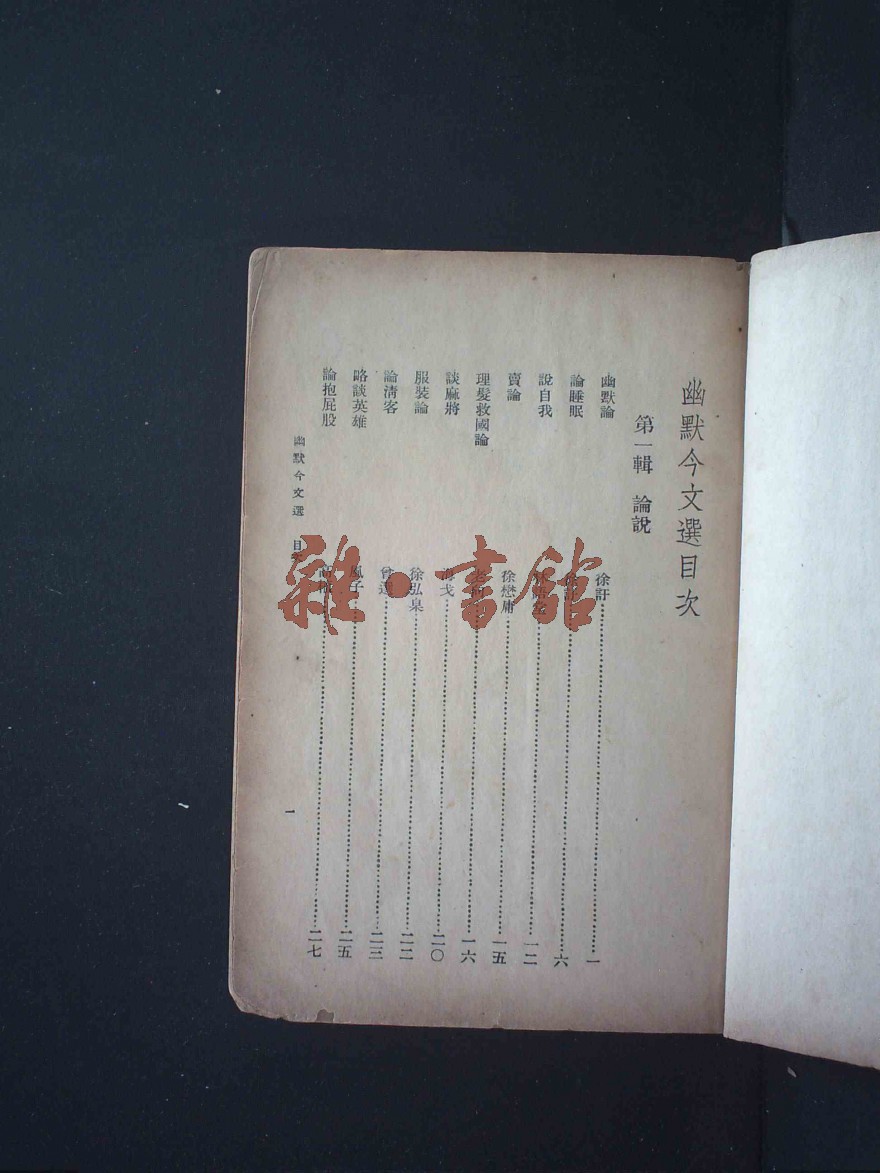 幽默今文選目次
第一輯 論說
幽默論 徐訏 一
論睡眠 徐訏 六
說自我 一二
賣論 徐懋庸 一五
理髮救國論 一六
談麻將 海戈 二〇
服裝論 徐弘臬 二二
論清客 曾迭 二三
略談英雄 風子 二五
論抱屁股 二七
幽默今文選 目次
一
雜·書館